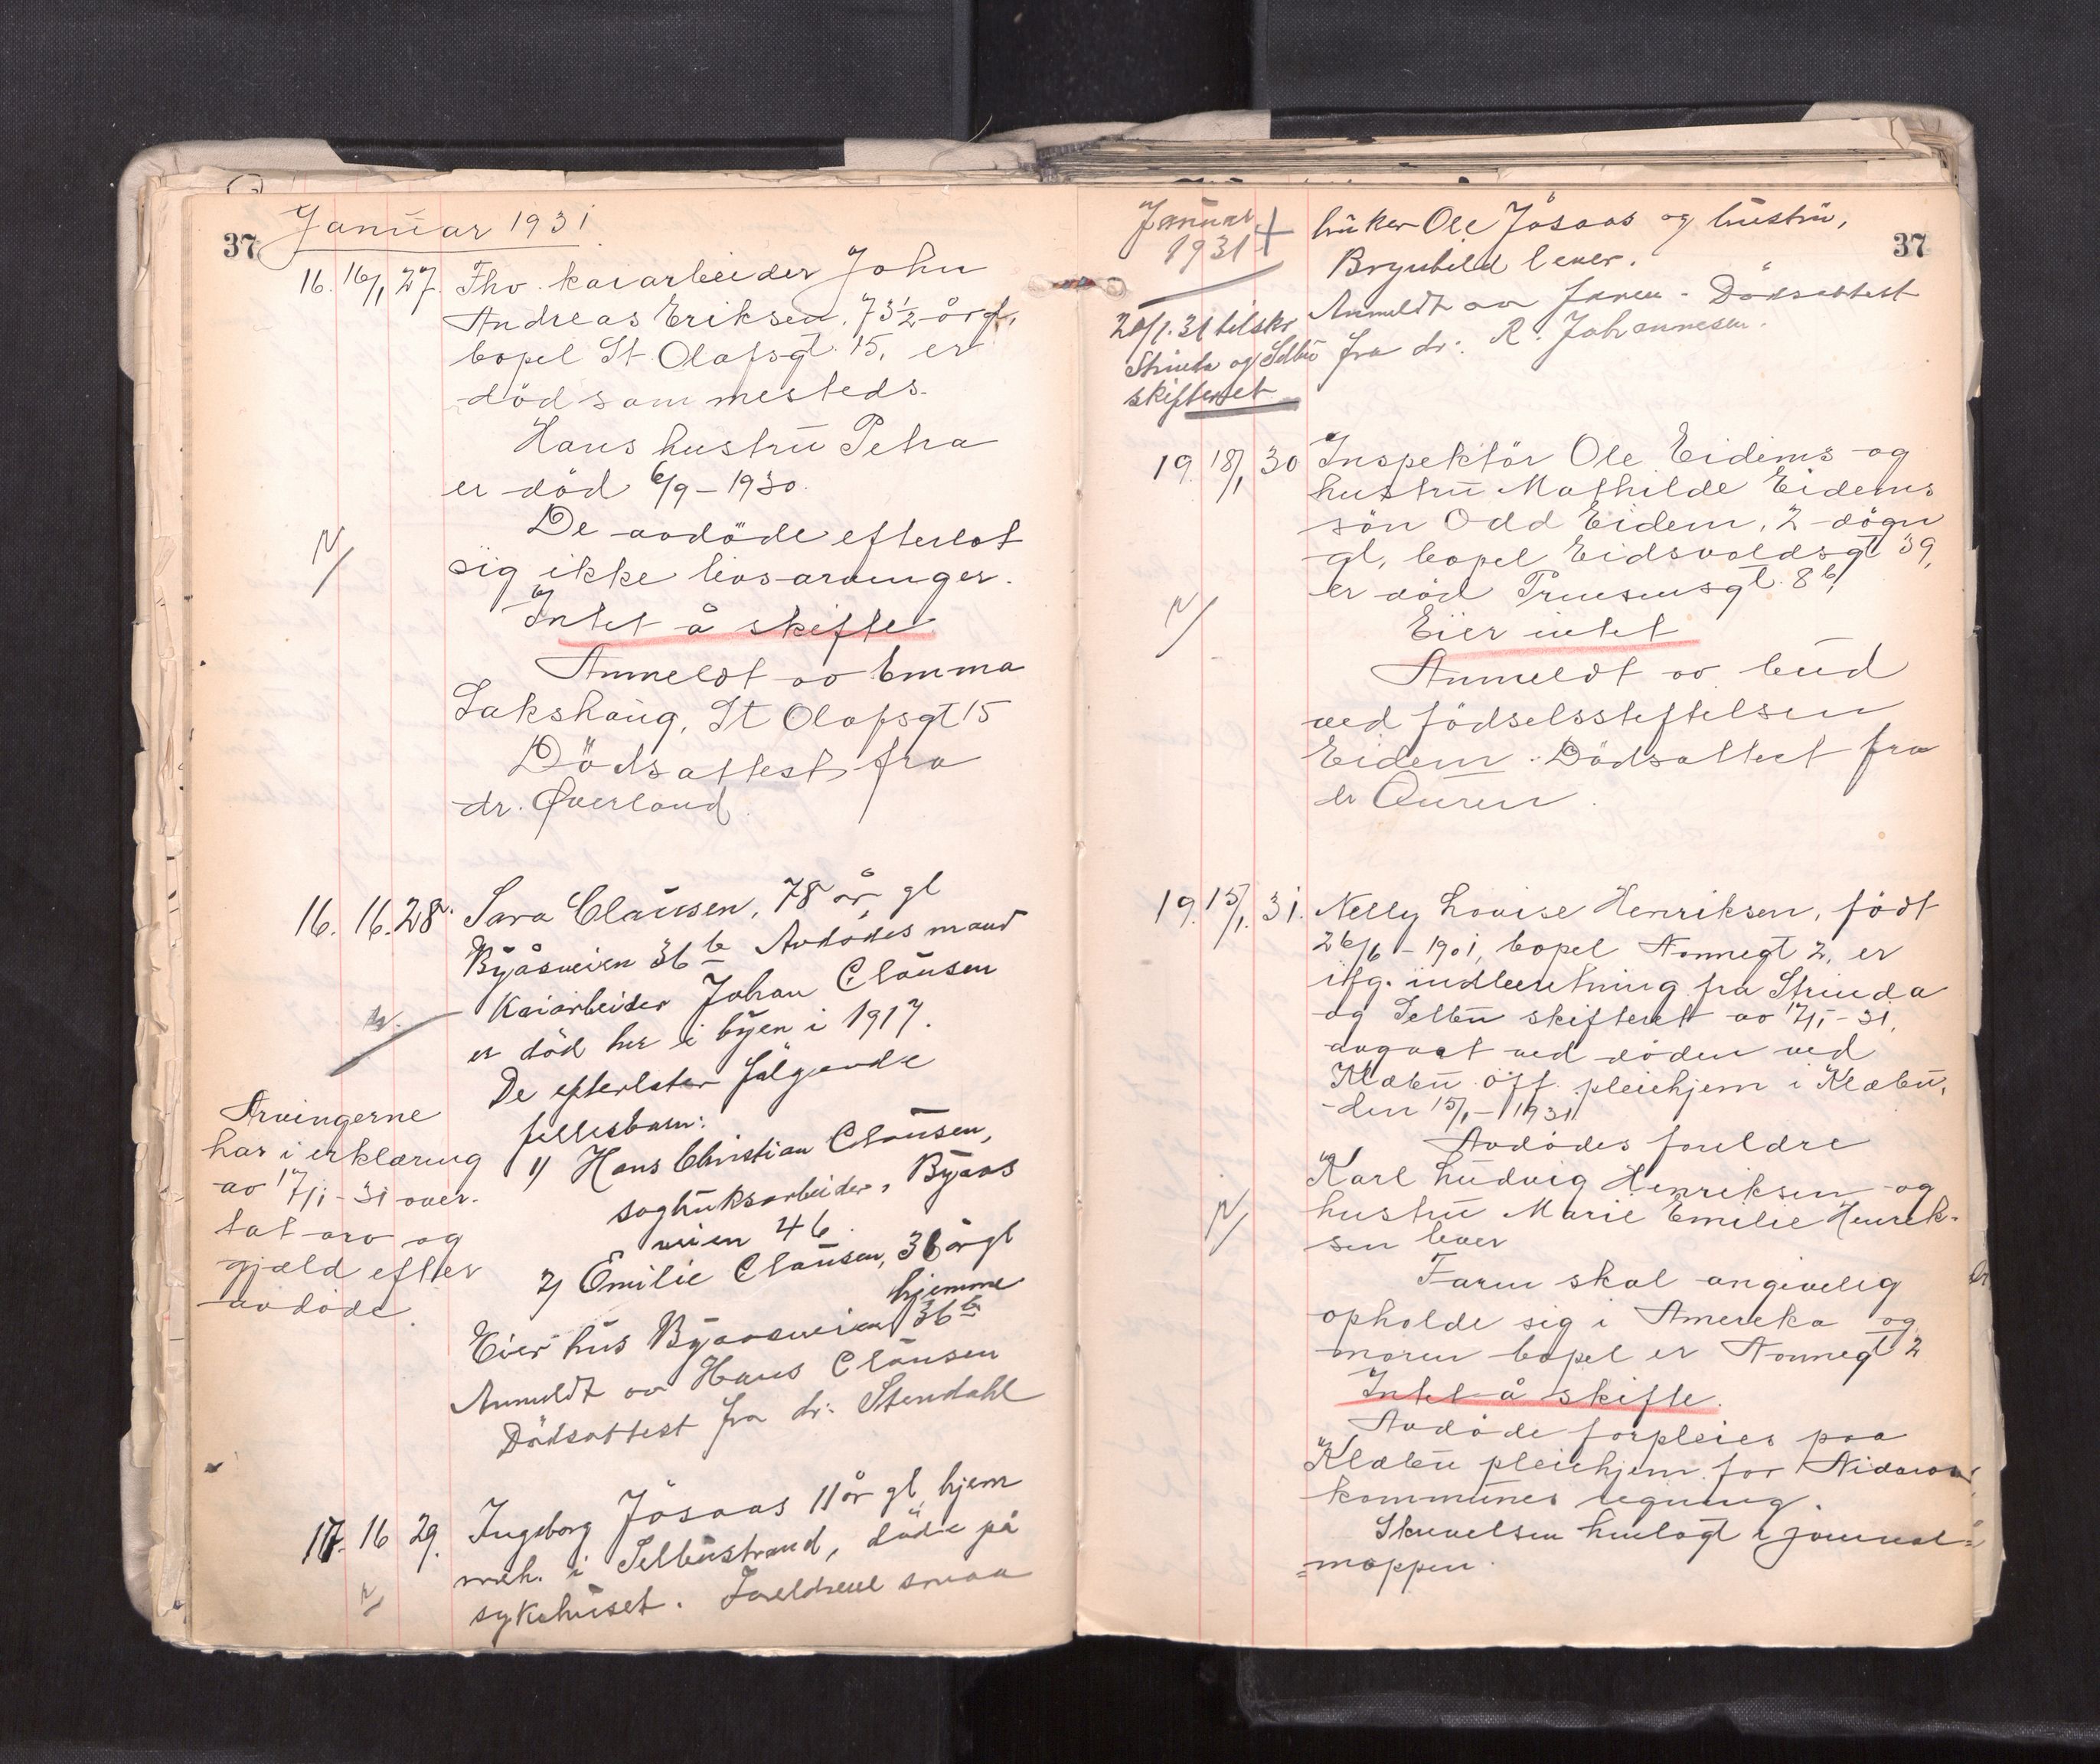 37
Januar 1931
16. 16/1 27. Fhv. kaiarbeider John
Andreas Eriksen, 73½ år gl,
bopel St. Olafsgt. 15, er
död sammesteds.
Hans hustru Petra
er död 6/9 - 1930.
De avdöde efterlot
sig ikke livsarvinger.
Intet å skifte
Anmeldt av Emma
Lakshaug, St Olafsgt 15
Dödsattest fra
dr. Øverland
N/
16. 16. 28. Sara Clausen, 78 år gl
Byåsveien 36 b Avdödes mand
Kaiarbeider Johan Clausen
er död her i byen i 1917.
De efterlater fölgende
fellesbarn:
1) Hans Christian Clausen,
sagbruksarbeider, Byaas
veien 46.
2) Emilie Clausen, 36 år gl
hjemme
Eier hus Byaasveien 36 b
Anmeldt av Hans Clausen
Dödsattest fra dr: Stendahl
Arvingerne
har i erklæring
av 17/1 - 31 over-
tat arv og
gjæld efter
avdöde.
17. 16 29. Ingeborg Jösaas 11 år gl, hjem
meh. i Selbustrand, döde på
sykehuset. Foreldrene smaa
N/
37
Januar
1931
+
bruker Ole Jösaas og hustru,
Brynhild lever.
Anmeldt av Faren - Dödsattest
fra dr: R. Johannesen.
20/1.31 tilskr
Strinda og Selbu
skifteret
19. 18/1 30 Inspektör Ole Eidems og
hustru Mathilde Eidems
sön Odd Eidem, 2 dögn
gl, bopel Eidsvoldsgt 39,
er död Prinsensgt. 8 b,
Eier intet
Anmeldt av bud
ved födselsstiftelsen
Eidem. Dödsattest fra
dr Auren.
N/
19. 15/1. 31. Nelly Lovise Henriksen, födt
26/6 - 1901, bopel Nonnegt 2, er
iflg. indberetning fra Strinda
og Selbu skifteret av 17/1 - 31,
avgaat ved döden ved
Klæbu off. pleiehjem i Klæbu,
den 15/1 - 1931
Avdödes foreldre
Karl Ludvig Henriksen og
hustru Marie Emilie Henrik-
sen lever
Faren skal angivelig
opholde sig i Amerika og
moren bopel er Nonnegt 2
Intet å skifte.
Avdöde forpleies paa
Klæbu pleiehjem for Nidaros
kommunes regning.
Skrivelsen henlagt i journal=
=mappen.
N/